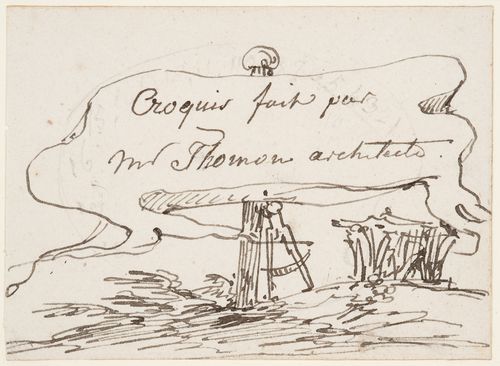 Croquis fait par
mr Thomon architecte.